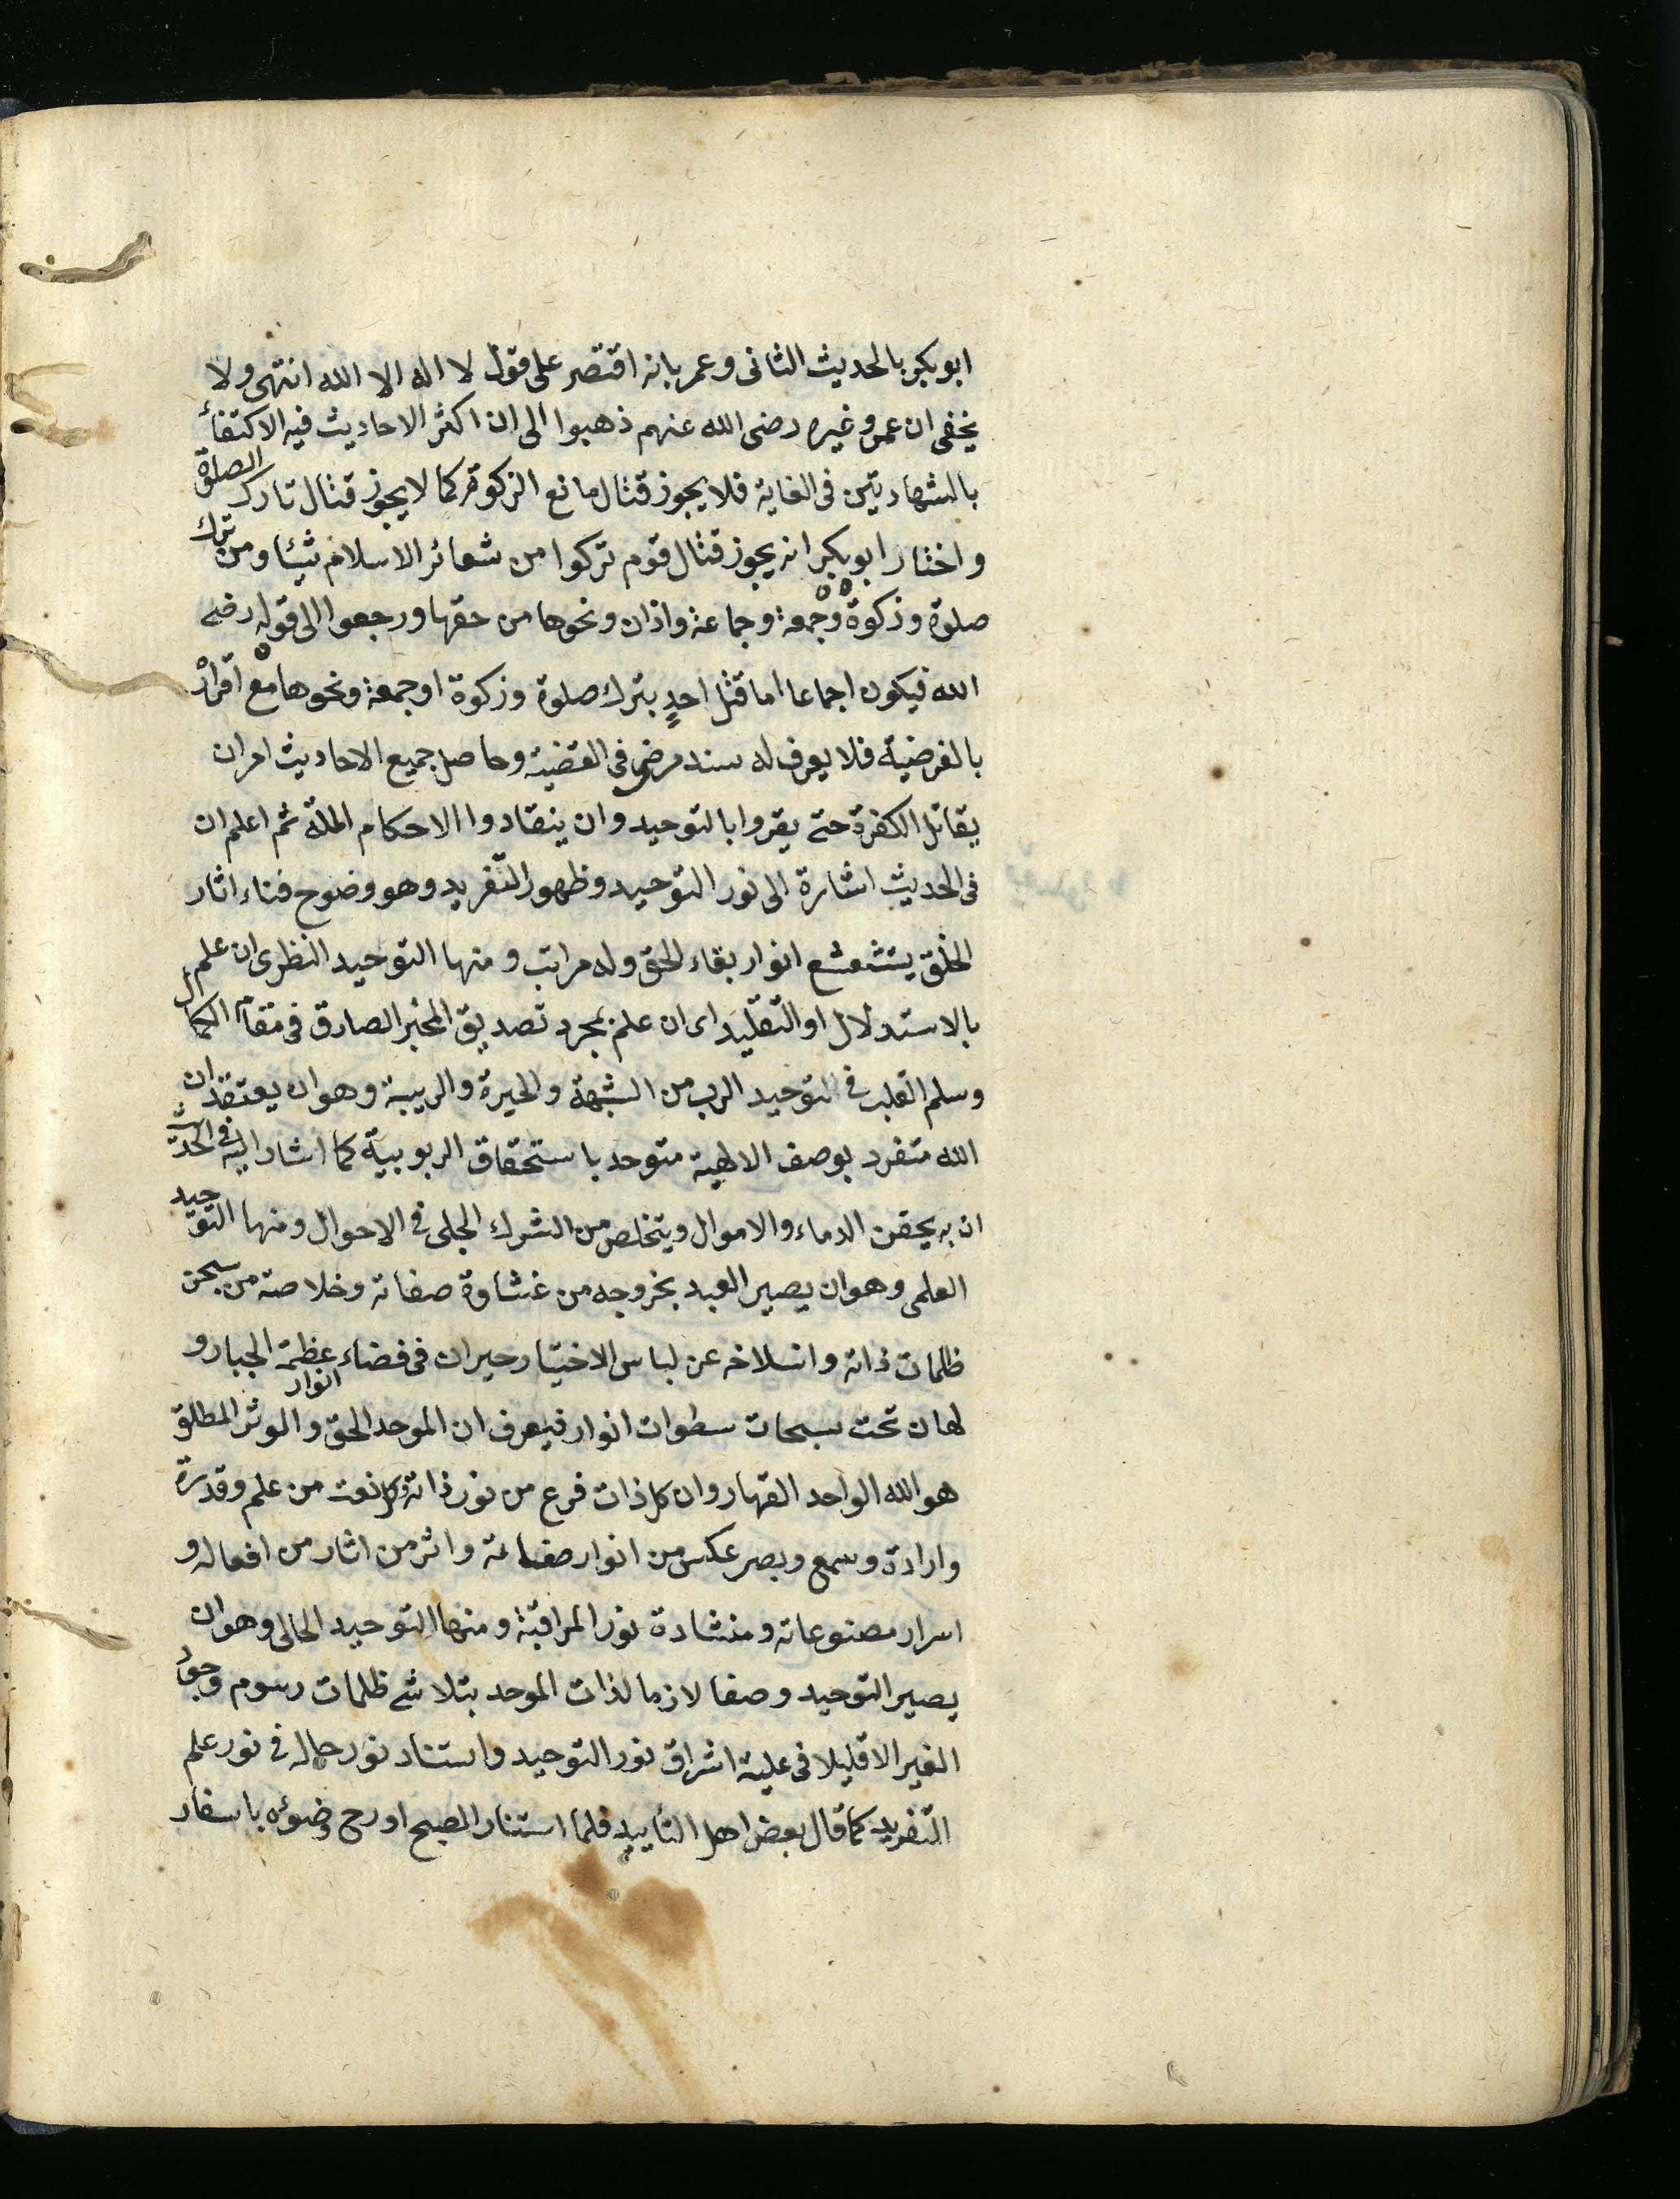 ابو بكر بالحديث الثانى وعمر بانه اقتصر على قول لا اله الا الله انتهى ولا
يخفى ان عمر وغيره رضى الله عنهم ذهبوا الى ان اكثر الاحاديث فيه الاكتفاء
بالشهادتين فى الغاية فلا يجوز قتال مانع الزكوة كما لا يجوز قتال تارك الصلوة
واختار ابو بكر انه يجوز قتال قوم تركوا من شعائر الاسلام شيئا ومن ترك
صلوة وزكوة وجمعة وجماعة واذان ونحوها من حقها ورجعوا الى قوله رضى
الله فيكون اجماعا اما قتل احدٍ بترك صلوة وزكوة او جمعة ونحوها مع اقراره
بالفرضية فلا يعرف له سند مرضى فى القضية وحاصل جميع الاحاديث امر ان
يقاتل الكفرة حتى يقروا بالتوحيد وان ينقادوا الاحكام الملة ثم اعلم ان
فى الحديث اشارة الى نور التوحيد وظهور التفريد وهو وضوح فناء اثار
الخلق يتشعشع انوار بقاء الحق وله مراتب ومنها التوحيد النظرى ان علم
بالاستدلال او التقليد اى ان علم بمجرد تصديق المخبر الصارق فى مقام الكمال
وسلم القلب فى التوحيد الرب من الشبهة والحيرة والريبة وهو ان يعتقد ان
الله متفرد بوصف الالهية متوحد باستحقاق الربوبية كما اشار اليه فى الحديث
ان به يحقن الدماء والاموال ويتخلص من الشرك الجلى فى الاحوال ومنها التوحيد
العلمى وهو ان يصير العبد بخروجه من غشاوة صفاته وخلاصه من سجن
ظلمات ذاته وانسلاخه عن لباس الاختيار حيران فى فضاء عظمة الجبار و
لهان تحت سبحات سطوات انوار انوار فيعرف ان الموحد الحق والموثر المطلق
هو الله الواحد القهار وان كل ذات فرع من نور ذاته وكل نعت من علم وقدرة
وارادة وسمع وبصر عكس من انوار صفاته واثر من اثار من افعاله و
اسرار مصنوعاته ومنشاءة نور المراقبة ومنها التوحيد الحالى وهو ان
يصير التوحيد وصفا لازما لذات الموحد بتلاشى ظلمات رسوم وجود
الغير الا قليلا فى علية اشراق نور التوحيد واستنار نور حاله فى نور علم
التفريد كما قال بعض اهل التأييد فلما استنار الصبح اورح ضوئه باسفار